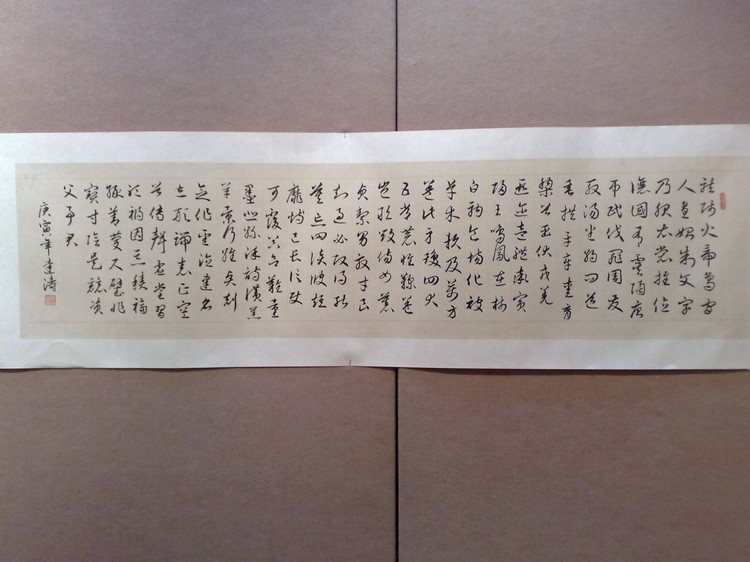 龍師火帝鳥官
人皇始制文字
乃服衣裳推位
讓國有虞陶唐
弔民伐罪周發
殷湯坐朝問道
垂拱平章愛育
黎首臣伏戎羌
遐邇壹體率賓
歸王鳴鳳在樹
白駒食場化被
草木賴及萬方
蓋此身髮四大
五常恭惟鞠養
豈敢毀傷女慕
貞絜男效才良
知過必改得能
莫忘罔談彼短
靡恃己長信使
可覆器欲難量
墨悲絲染詩讚羔
羊景行維賢剋
念作聖德建名
立形端表正空
谷傳聲虛堂習
聽禍因惡積福
緣善慶尺璧非
寶寸陰是競資
父事君
庚寅年濤